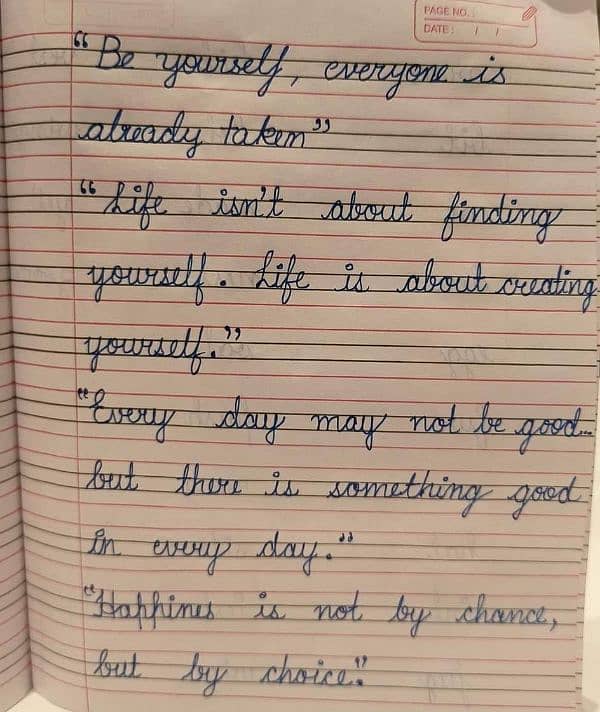 PAGE NO.:
DATE: / /
“Be yourself, everyone is
already taken”
“Life isn't about finding
yourself. Life is about creating
yourself.”
“Every day may not be good...
but there is something good
in every day.”
“Happines is not by chance,
but by choice.”